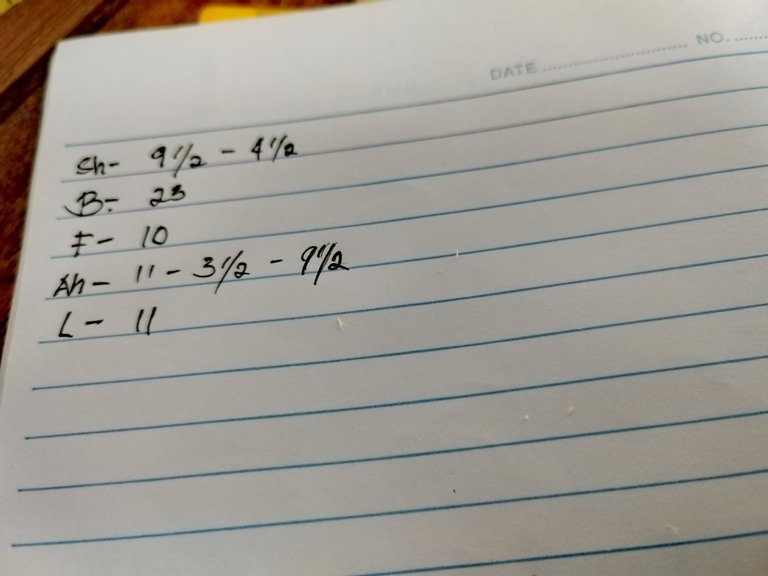 DATE ........................ NO. ......
Sh- 9 1/2 - 4 1/2
B- 23
F- 10
Ah- 11 - 3 1/2 - 9 1/2
L - 11